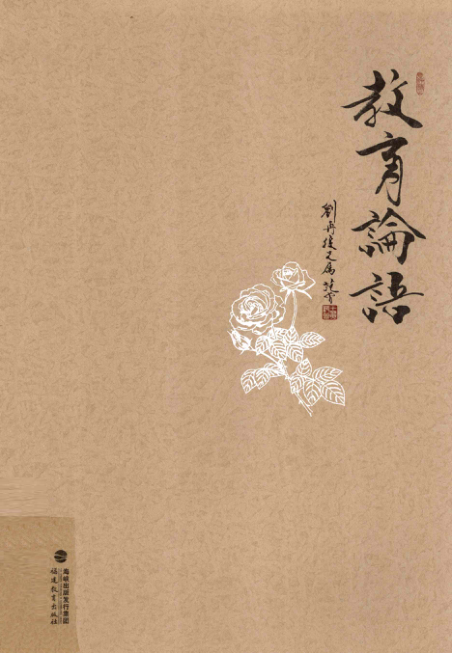 教育論語
劉再復文屠
海峡出版发行集团
福建教育出版社